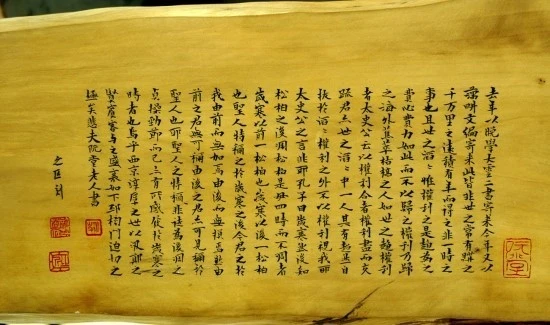 去年以晩學大雲二書寄來今年又以
藕畊文編寄來此皆非世之常有購之
千万里之遠積有年而得之非一時之
事也且世之滔滔惟權利之是趨爲之
費心費力如此而不以歸之權利乃歸
之海外蕉萃枯槁之人如世之趨權利
者太史公云以權利合者權利盡而交
疎君亦世之滔滔中一人其有超然自
拔於滔滔權利之外不以權利視我耶
太史公之言非耶孔子曰歲寒然後知
松栢之後凋松栢是毋四時而不凋者
歲寒以前一松栢也歲寒以後一松栢
也聖人特稱之於歲寒之後今君之於
我由前而無加焉由後而無損焉然由
前之君無可稱由後之君亦可見稱於
聖人也耶聖人之特稱非徒爲後凋之
貞操勁節而已亦有所感發於歲寒之
時者也烏乎西京淳厚之世以汲鄭之
賢賓客與之盛衰如下邳榜門迫切之
極矣悲夫阮堂老人書